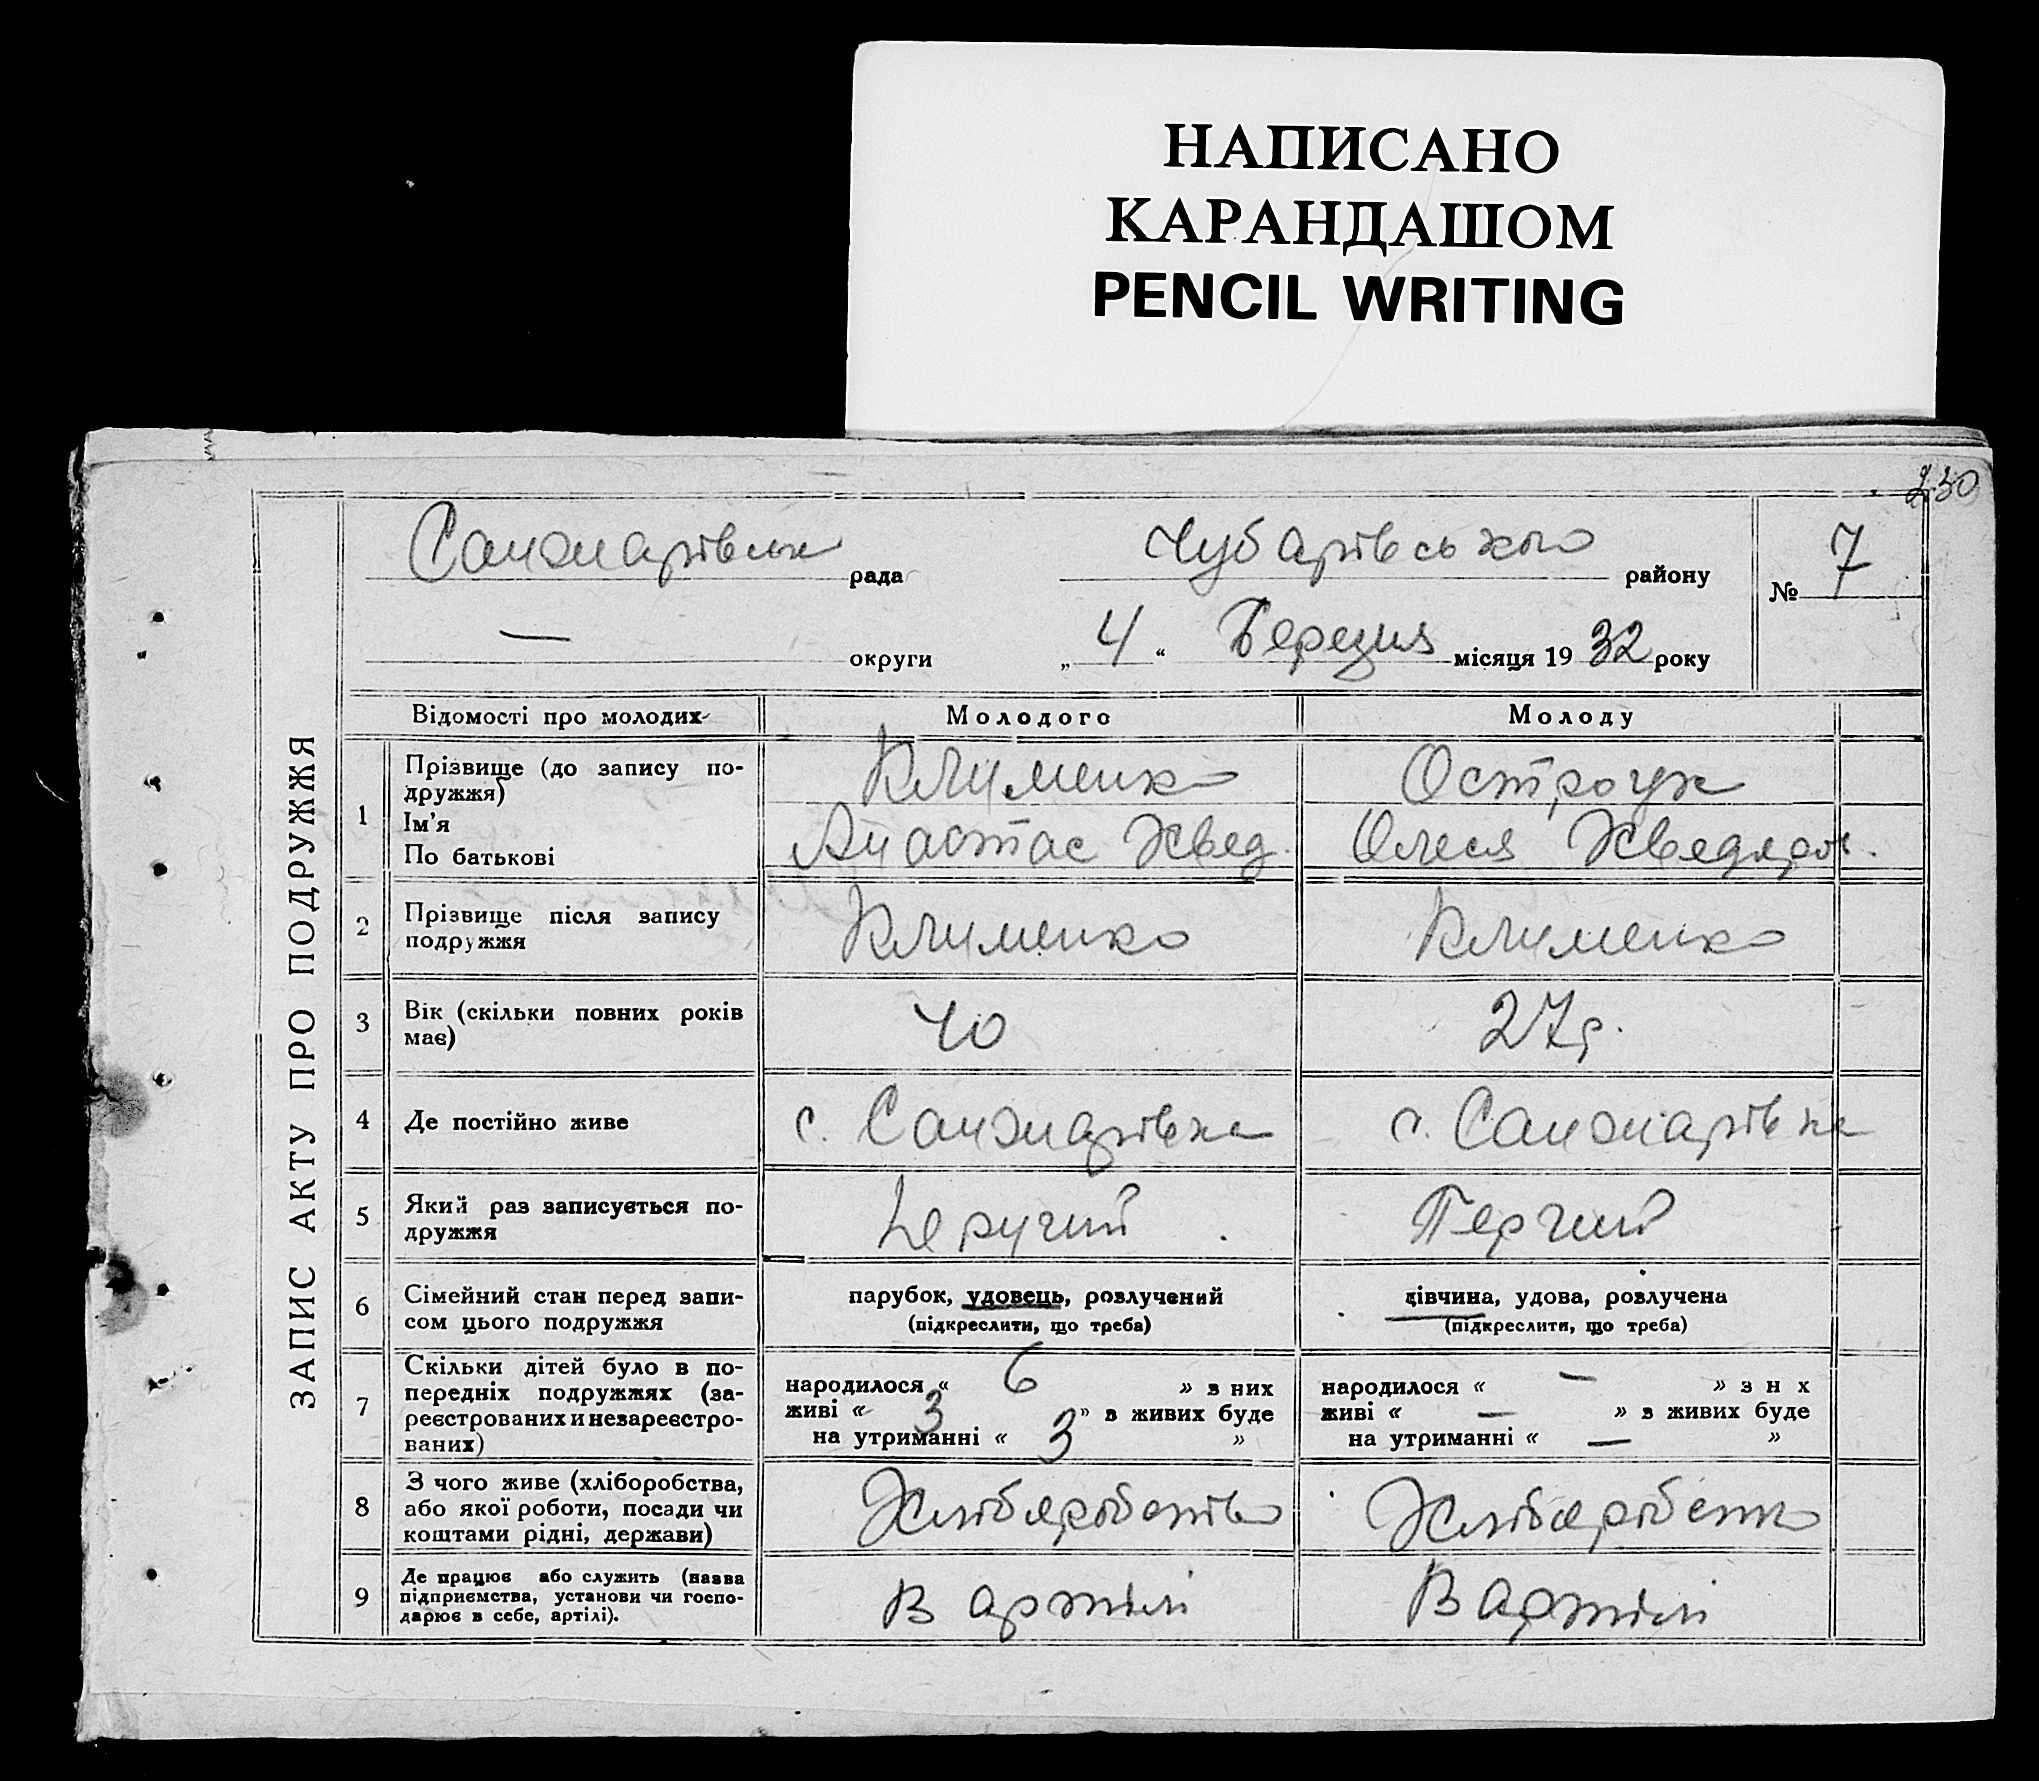 НАПИСАНО
КАРАНДАШОМ
PENCIL WRITING
230
ЗАПИС АКТУ ПРО ПОДРУЖЖЯ
рада Чубарівського району № 7
— округи „ 4 “ Березня місяця 19 32 року
Відомості про молодих Молодого Молоду
1 Прізвище (до запису по-
дружжя) Клименко
Ім'я
По батькові Анастас Хвед. Олеся Хведяров.
2 Прізвище після запису
подружжя Клименко Клименко
3 Вік (скільки повних років
має) 40 27 р.
4 Де постійно живе с. Санжарівка с. Санжарівка
5 Який раз записується по-
дружжя Перчий
6 Сімейний стан перед запи-
сом цього подружжя парубок, удовець, розлучений дівчина, удова, розлучена
(підкреслити, що треба) (підкреслити, що треба)
7 Скільки дітей було в по-
передніх подружжях (за-
реєстрованих и незареєстро-
ваних)
народилося « 6 » з них народилося « — » з н х
живі « 3 » з живих буде живі « — » з живих буде
на утриманні « 3 » на утриманні « — »
8 З чого живе (хліборобства,
або якої роботи, посади чи
коштами рідні, держави)
9 Де працює або служить (назва
підприємства, установи чи госпо-
дарює в себе, артілі). В артілі В артілі